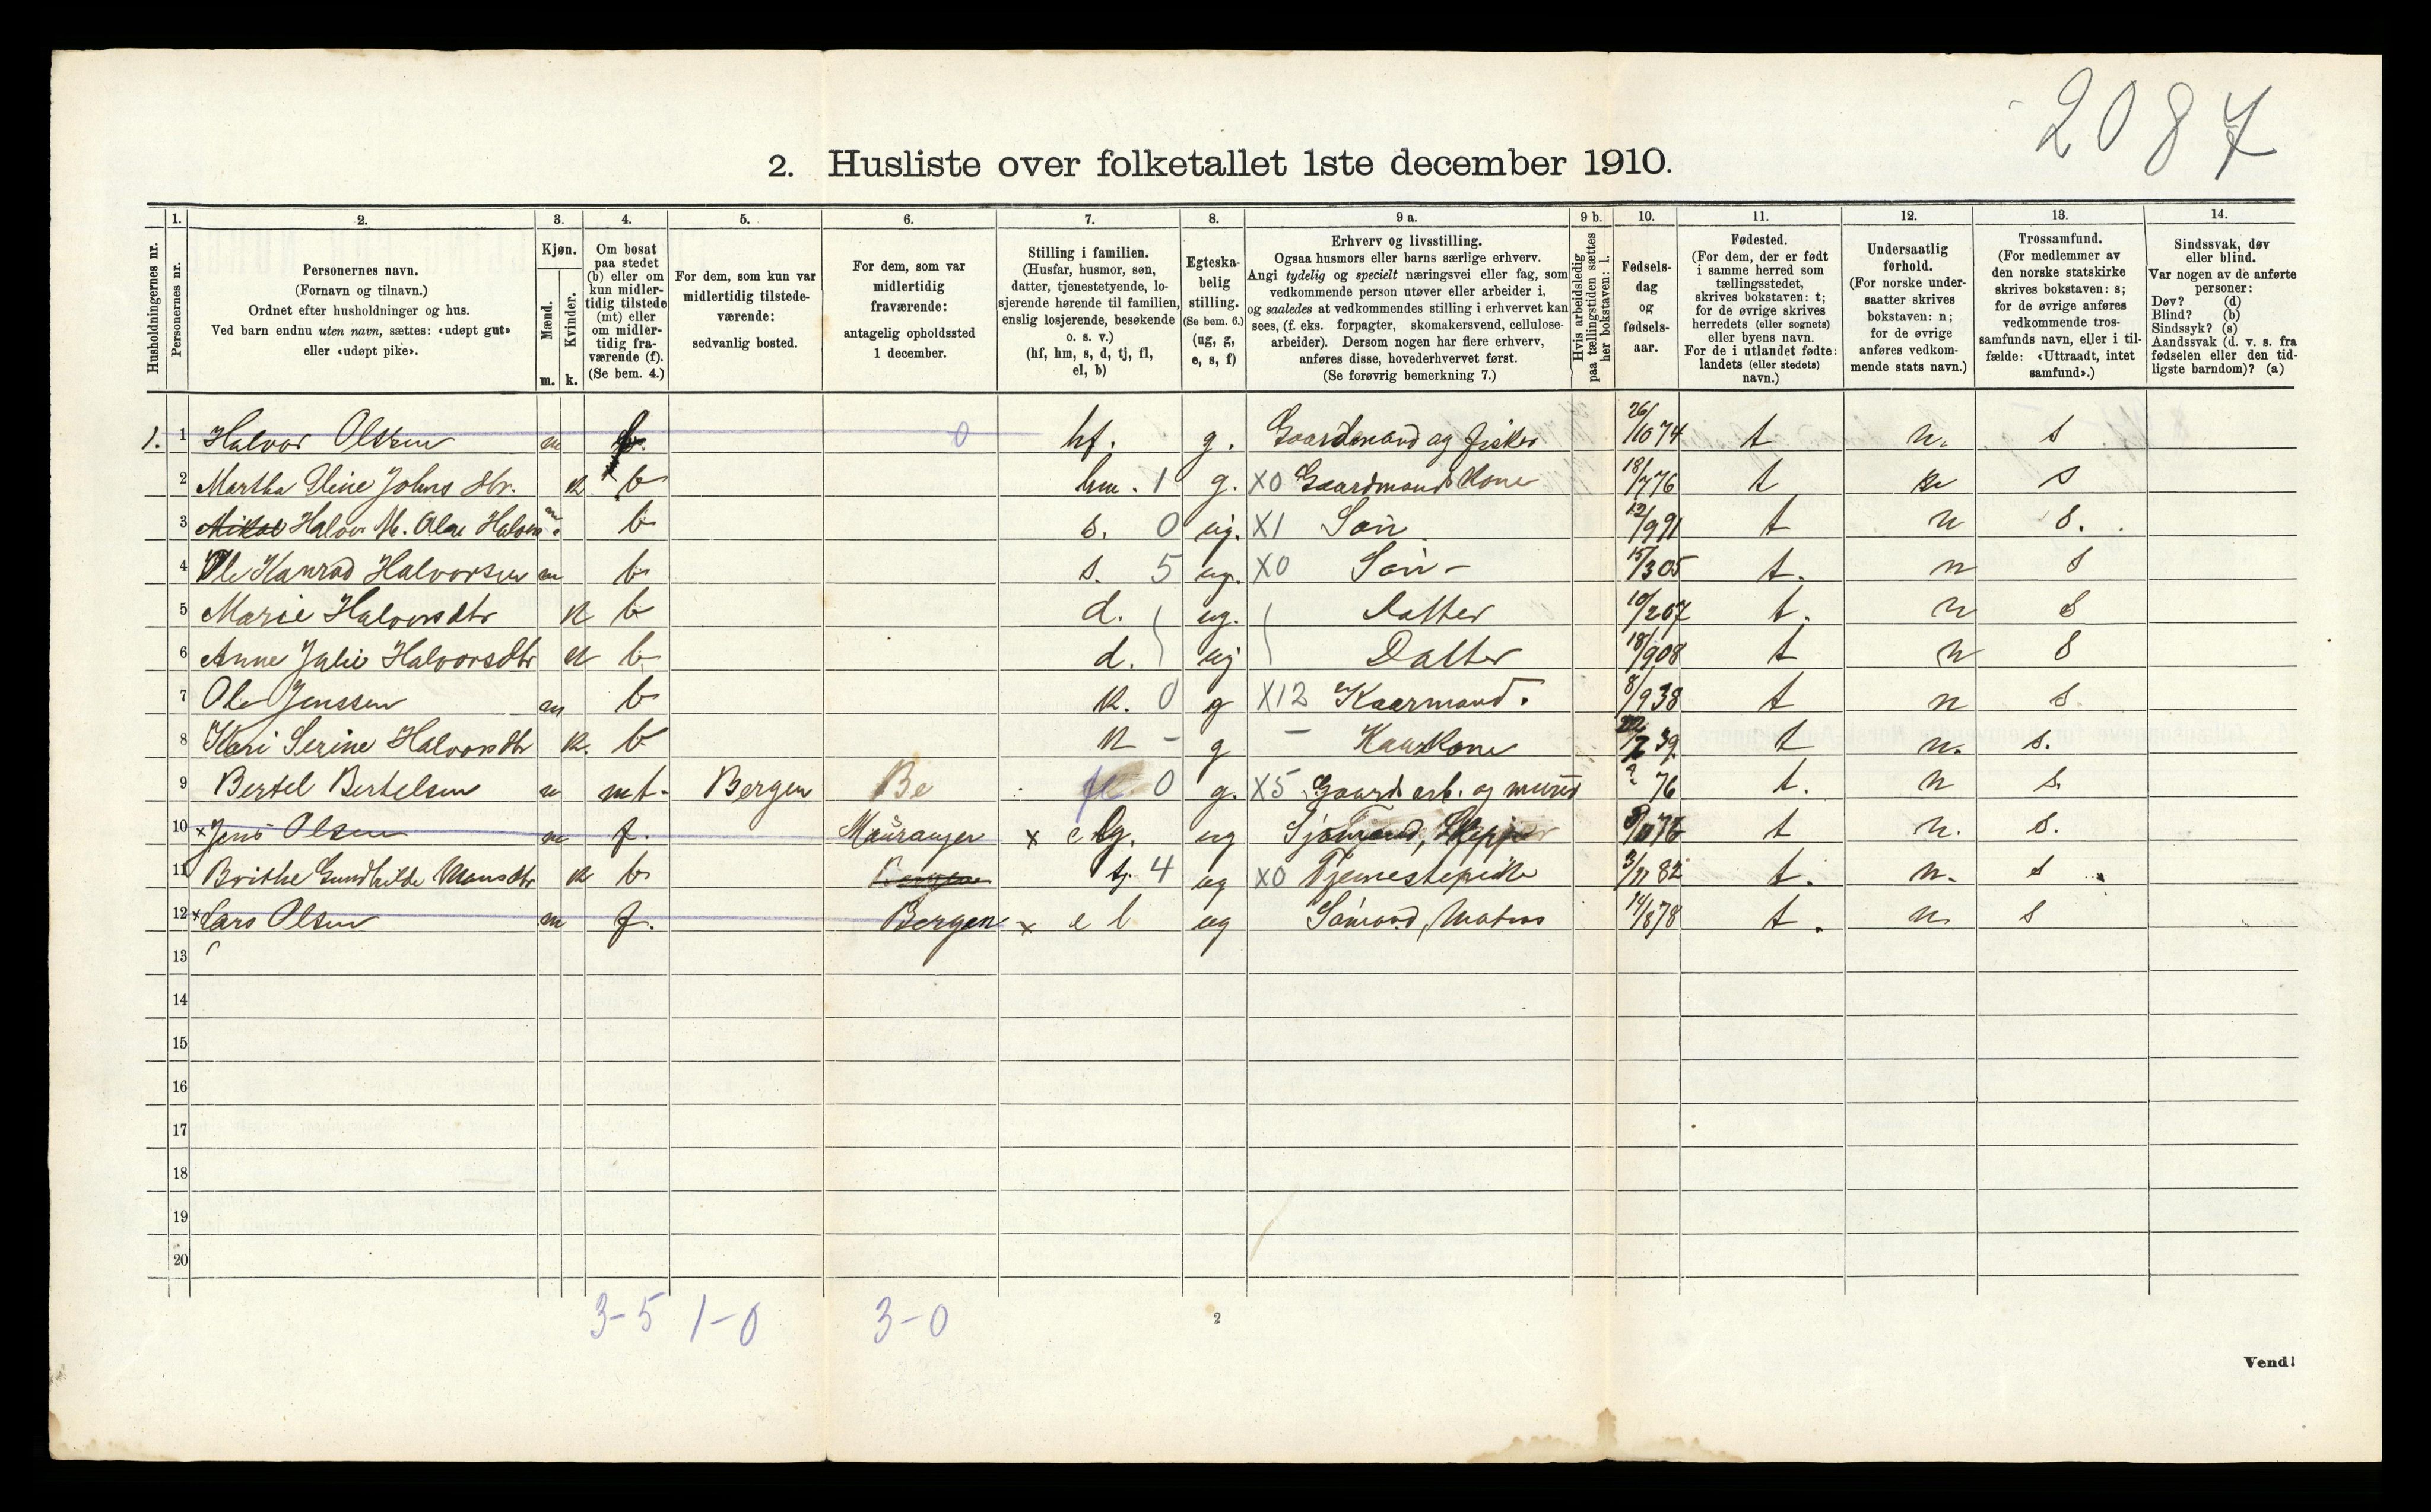 2087
2. Husliste over folketallet 1ste december 1910.
Husholdningernes nr.
1.
Personernes nr.
2.
Personernes navn.
(Fornavn og tilnavn.)
Ordnet efter husholdninger og hus.
Ved barn endnu uten navn, sættes: «udøpt gut»
eller «udøpt pike».
3.
Kjøn.
Mænd.
Kvinder.
m. k.
4.
Om bosat
paa stedet
(b) eller om
kun midler-
tidig tilstede
(mt) eller
om midler-
tidig fra-
værende (f).
(Se bem. 4.)
5.
For dem, som kun var
midlertidig tilstede-
værende:
sedvanlig bosted.
6.
For dem, som var
midlertidig
fraværende:
antagelig opholdssted
1 december.
7.
Stilling i familien.
(Husfar, husmor, søn,
datter, tjenestetyende, lo-
sjerende hørende til familien,
enslig losjerende, besøkende
o. s. v.)
(hf, hm, s, d, tj, fl,
el, b)
8.
Egteska-
belig
stilling.
(Se bem. 6.)
(ug, g,
e, s, f)
9 a.
Erhverv og livsstilling.
Ogsaa husmors eller barns særlige erhverv.
Angi tydelig og specielt næringsvei eller fag, som
vedkommende person utøver eller arbeider i,
og saaledes at vedkommendes stilling i erhvervet kan
sees, (f. eks. forpagter, skomakersvend, cellulose-
arbeider). Dersom nogen har flere erhverv,
anføres disse, hovederhvervet først.
(Se forøvrig bemerkning 7.)
9 b.
Hvis arbeidsledig
paa tællingstiden sættes
her bokstaven: l.
10.
Fødsels-
dag
og
fødsels-
aar.
11.
Fødested.
(For dem, der er født
i samme herred som
tællingsstedet,
skrives bokstaven: t;
for de øvrige skrives
herredets (eller sognets)
eller byens navn.
For de i utlandet fødte:
landets (eller stedets)
navn.)
12.
Undersaatlig
forhold.
(For norske under-
saatter skrives
bokstaven: n;
for de øvrige
anføres vedkom-
mende stats navn.)
13.
Trossamfund.
(For medlemmer av
den norske statskirke
skrives bokstaven: s;
for de øvrige anføres
vedkommende tros-
samfunds navn, eller i til-
fælde: «Uttraadt, intet
samfund».)
14.
Sindssvak, døv
eller blind.
Var nogen av de anførte
personer:
Døv? (d)
Blind? (b)
Sindssyk? (s)
Aandssvak (d. v. s. fra
fødselen eller den tid-
ligste barndom)? (a)
1. 1 Halvor Olsen m b. 0 hf. g. Gaardmand og fisker 26/10 74 t n. s
2 Martha Oline Johns dtr. k b hm. 1 g. X0 Gaardmands Kone 18/7 76 t n s
3 Halvor M. Olai Halvors m. b s. 0 ug. X1 Søn 12/9 91 t n s.
4 Ole Konrad Halvorsen m b s. 5 ug. X0 Søn - 15/3 05 t. n s
5 Marie Halvorsdtr k b d. ug. Datter 10/2 07 t. n s
6 Anne Julie Halvorsdtr k b d. ug Datter 18/9 08 t n s
7 Ole Jenssen m b k. 0 g X12 Kaarmand. 8/9 38 t n s
8 Kari Serine Halvorsdtr k. b k - g - Kaarkone 7 39 t n. s.
9 Bertel Bertelsen m mt. Bergen Be fl 0 g. X5 Gaards arb. og murer ? 76 t. n s.
10 x Jens Olsen m f. Mauranger x el ug Sjømand, Skipper t n. s.
11 Brithe Gundhilde Monsdtr k b Bergen tj. 4 ug X0 Tjenestepike 3/11 82 t. n. s
12 x Lars Olsen m f. Bergen x el ug Sømand, Matros 14/8 78 t. n. s
13
14
15
16
17
18
19
20
3-5 1-0 3-0
2
Vend!